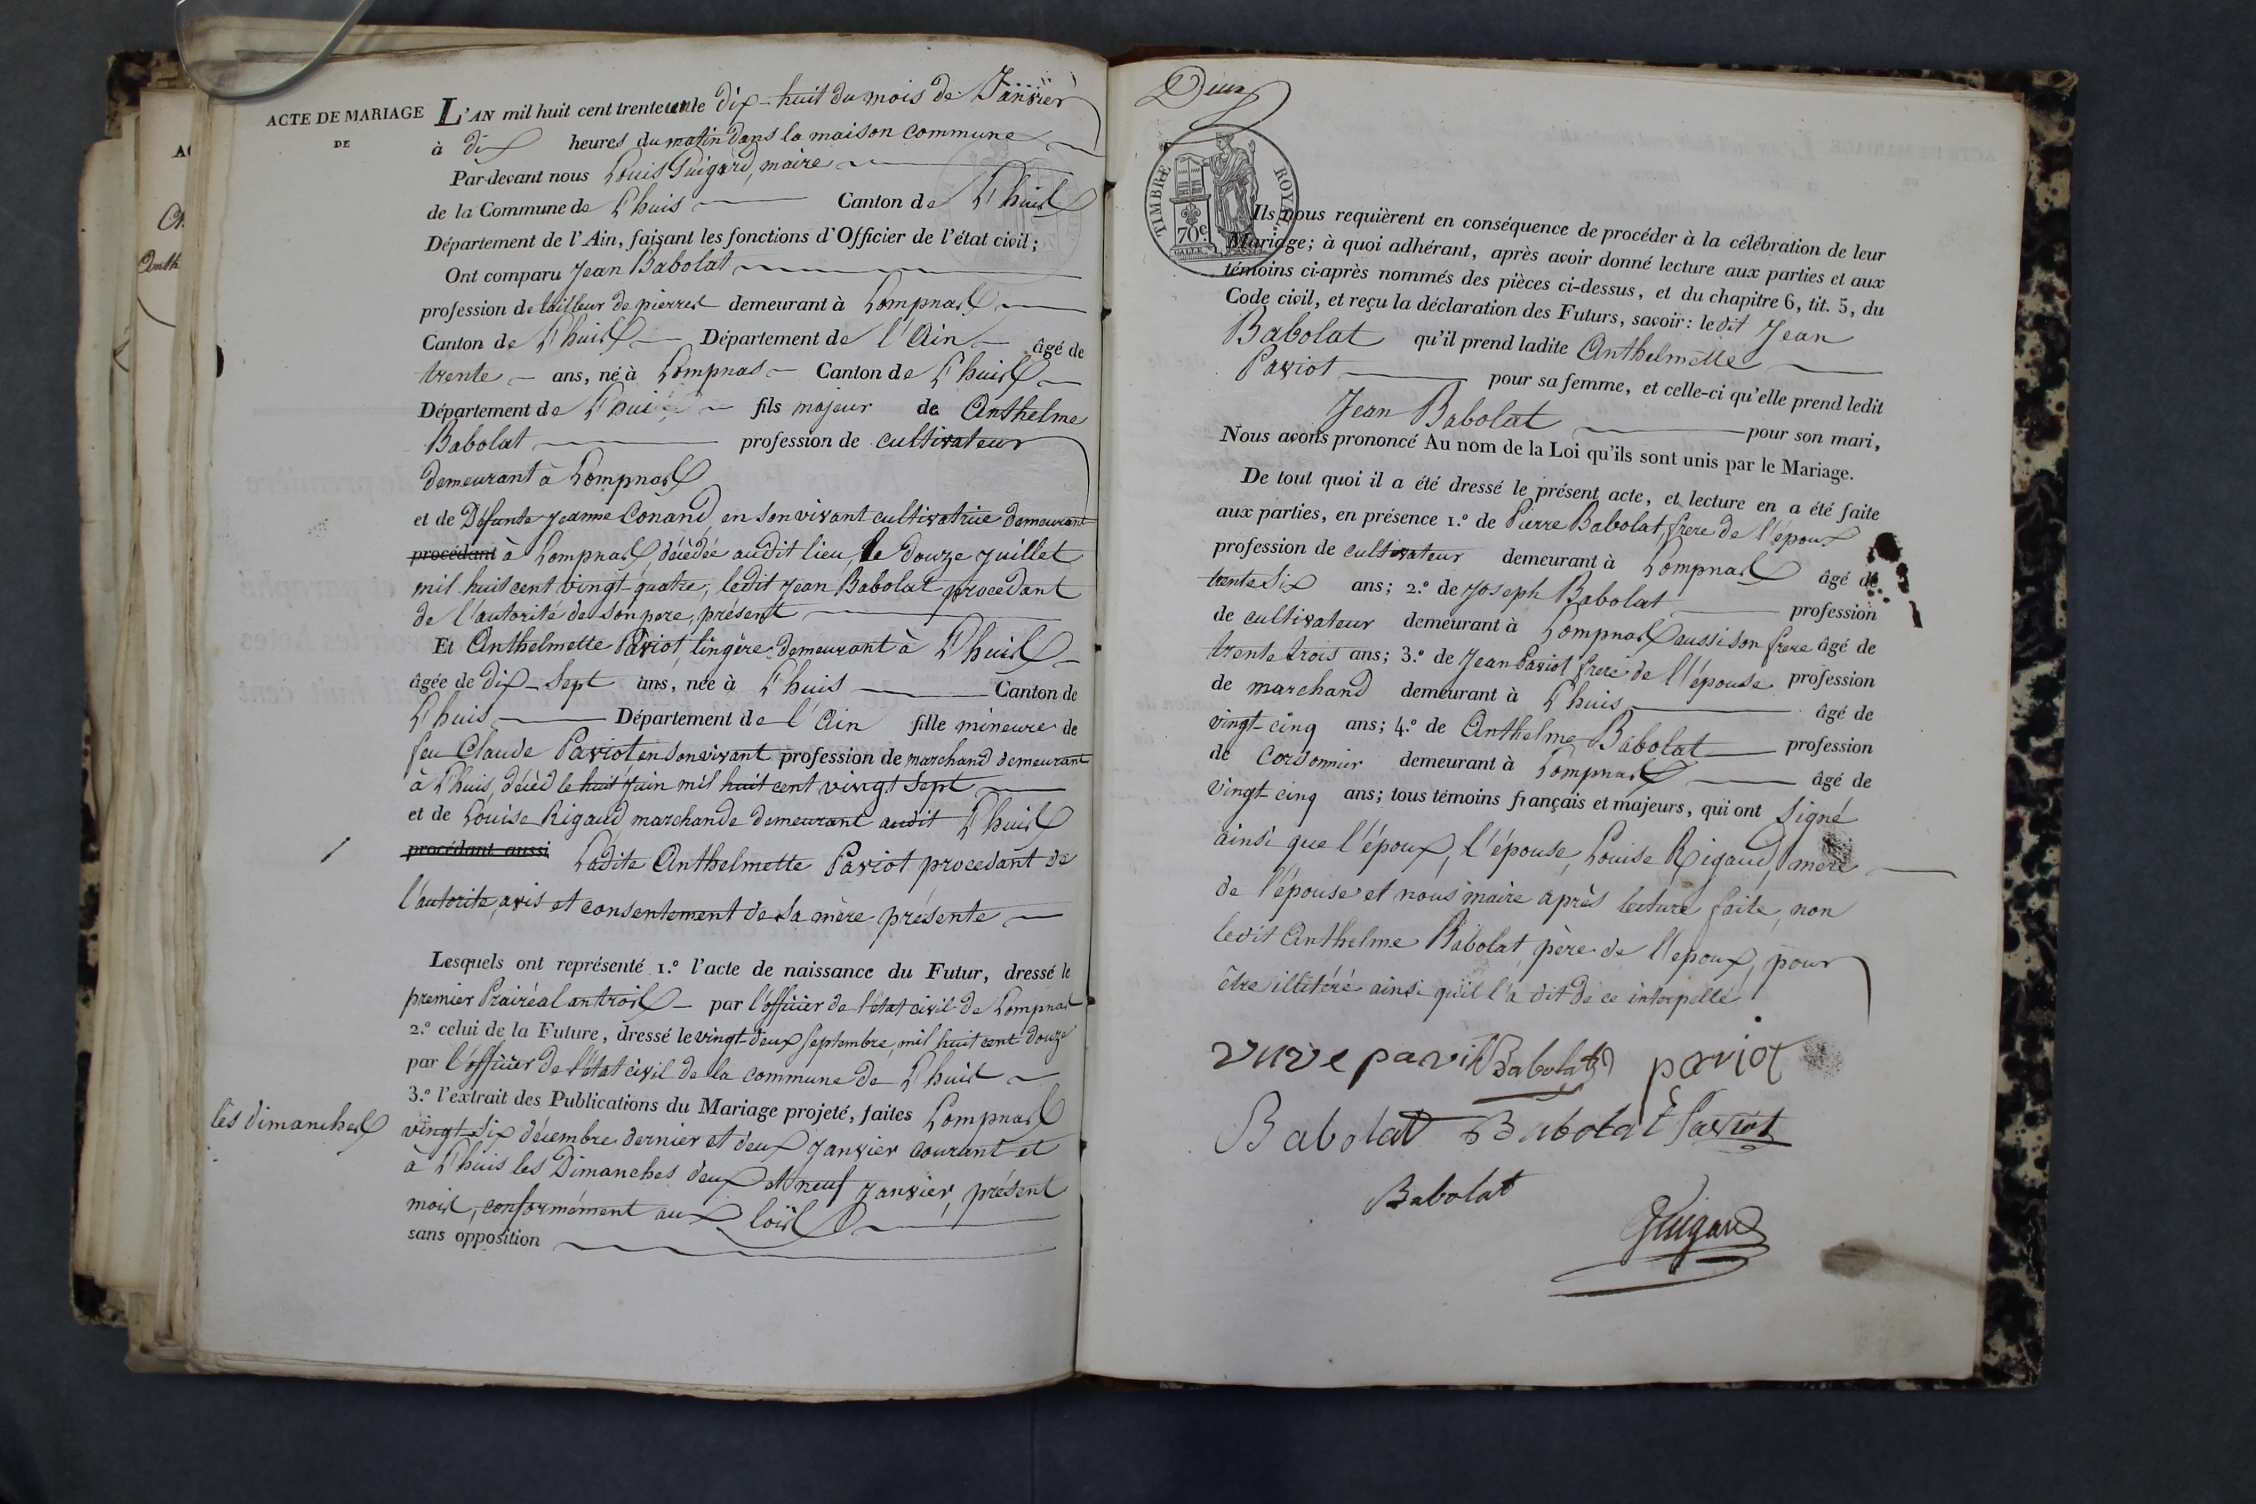 ACTE DE MARIAGE
DE
L'AN mil huit cent trente un le dix-huit du mois de Janvier
à dix heures du matin dans la maison commune
Par-devant nous Louis Guigard, maire
de la Commune de Lhuis Canton de Lhuis
Département de l'Ain, faisant les fonctions d'Officier de l'état civil;
Ont comparu Jean Babolat
profession de tailleur de pierres demeurant à Lompnas
Canton de Lhuis Département de l'Ain âgé de
trente ans, né à Lompnas Canton de Lhuis
Département de Lhuis fils majeur de Anthelme
Babolat profession de cultivateur
demeurant à Lompnas
et de Défunte Jeanne Conand en son vivant cultivatrice demeurant
procédant à Lompnas, décédée audit lieu, le douze juillet
mil huit cent vingt-quatre, ledit Jean Babolat procedant
de l'autorité de son pere, présent
Et Anthelmette Paviot, lingère demeurant à Lhuis
âgée de dix-sept ans, née à Lhuis Canton de
Lhuis Département de l'Ain fille mineure de
feu Claude Paviot en son vivant profession de marchand demeurant
à Lhuis, décéd le huit juin mil huit cent vingt sept
et de Louise Rigaud marchande demeurant audit Lhuis
procédant aussi Ladite Anthelmette Paviot procedant de
l'autorite, avis et consentement de sa mère présente
Lesquels ont représenté 1.º l'acte de naissance du Futur, dressé le
premier Prairéal an trois par l'officier de l'état civil de Lompnas
2.º celui de la Future, dressé le vingt-deux septembre, mil huit cent douze
par l'officier de l'état civil de la commune de Lhuis
3.º l'extrait des Publications du Mariage projeté, faites Lompnas
les dimanches
vingt-six décembre dernier et deux Janvier courant et
à Lhuis les Dimanches deux et neuf Janvier, présent
mois, conformément aux lois
sans opposition
Deux
TIMBRE ROYAL
70c.
Ils nous requièrent en conséquence de procéder à la célébration de leur
Mariage; à quoi adhérant, après avoir donné lecture aux parties et aux
témoins ci-après nommés des pièces ci-dessus, et du chapitre 6, tit. 5, du
Code civil, et reçu la déclaration des Futurs, savoir: ledit Jean
Babolat qu'il prend ladite Anthelmette
Paviot pour sa femme, et celle-ci qu'elle prend ledit
Jean Babolat pour son mari,
Nous avons prononcé Au nom de la Loi qu'ils sont unis par le Mariage.
De tout quoi il a été dressé le présent acte, et lecture en a été faite
aux parties, en présence 1.º de Pierre Babolat, frere de l'époux
profession de cultivateur demeurant à Lompnas âgé de
trente six ans; 2.º de Joseph Babolat profession
de cultivateur demeurant à Lompnas aussi son frere âgé de
trente trois ans; 3.º de Jean Paviot frere de l'épouse profession
de marchand demeurant à Lhuis âgé de
vingt-cinq ans; 4.º de Anthelme Babolat profession
de cordonnier demeurant à Lompnas âgé de
vingt-cinq ans; tous témoins français et majeurs, qui ont signé
ainsi que l'époux, l'épouse, Louise Rigaud, mère
de l'épouse et nous maire après lecture faite, non
ledit Anthelme Babolat père de l'epoux, pour
être illitéré ainsi qu'il l'a dit de ce interpellé
Babolat paviot
Babolat Babolat Paviot
Babolat
Guigard